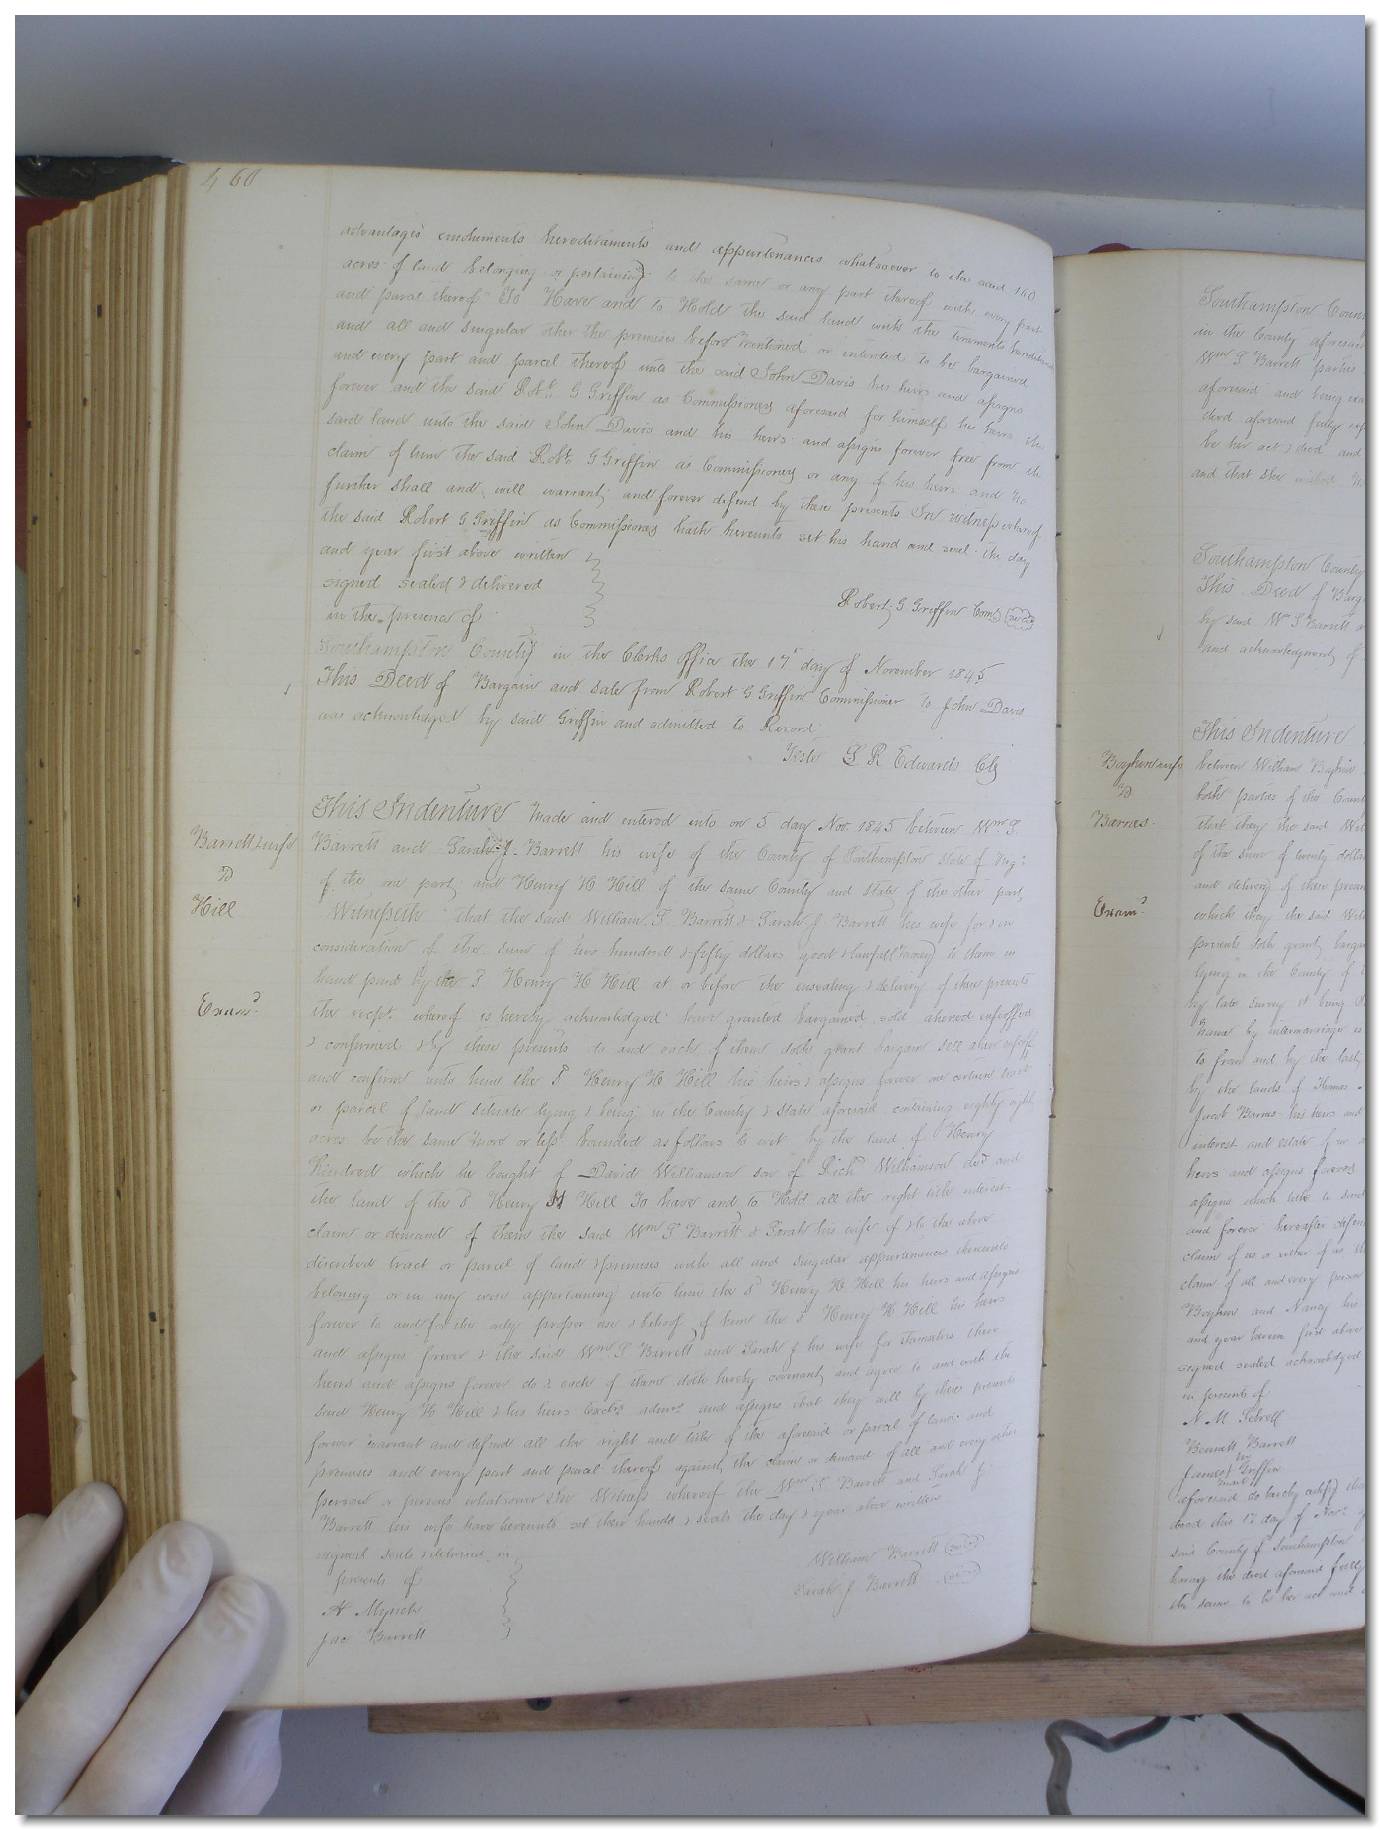 460
advantages emoluments hereditaments and appurtenances whatsoever to the said 160
acres of land belonging or pertaining to the same or any part thereof with every part
and parcel thereof To Have and to Hold the said land with the tenements
and all and singular other the premises before mentioned or intended to be bargained
and every part and parcel thereof unto the said John Davis his heirs and assigns
forever and the said Robt. G Griffin as Commissioner aforesaid for himself his heirs the
said land unto the said John Davis and his heirs and assigns forever free from the
claim of him the said Robt. G Griffin as Commissioner or any of his heirs and no
further shall and will warrant and forever defend by these presents In witness whereof
the said Robert G Griffin as Commissioner hath hereunto set his hand and seal the day
and year first above written
signed sealed & delivered
in the presence of
Robert G Griffin Com
Southampton County in the Clerks office the 17 day of November 1845
This Deed of Bargain and sale from Robert G Griffin Commissioner to John Davis
was acknowledged by said Griffin and admitted to Record
Teste L R Edwards Clk
Barrett & wife
To
Hill
Examd.
This Indenture Made and entered into on 5 day Nov. 1845 between Wm. T.
Barrett and Sarah J. Barrett his wife of the County of Southampton State of Virg.
of the one part and Henry H Hill of the same County and State of the other part
Witnesseth that the said William T Barrett & Sarah J Barrett his wife for & in
consideration of the sum of two hundred & fifty dollars good & lawfull money to them in
hand paid by the S Henry H Hill at or before the ensealing & delivery of these presents
the recpt. whereof is hereby acknowledged have granted bargained sold aliened enfeoffed
& confirmed & by these presents do and each of them doth grant bargain sell alien enfeoff
and confirm unto him the S Henry H Hill his heirs & assigns forever one certain tract
or parcel of land situate lying & being in the County & State aforesaid containing eighty eight
acres be the same more or less bounded as follows to wit by the land of Henry
Kindred which he bought of David Williamson son of Rich Williamson decd and
the land of the S Henry H Hill To have and to Hold all the right title interest
claim or demand of them the said Wm T Barrett & Sarah his wife of & to the above
described tract or parcel of land & premises with all and singular appurtenances thereunto
belonging or in any wise appertaining unto him the S Henry H Hill his heirs and assigns
forever to and for the only proper use & behoof of him the S Henry H Hill his heirs
and assigns forever & the said Wm T Barrett and Sarah J his wife for themselves their
heirs and assigns forever do & each of them doth hereby covenant and agree to and with the
said Henry H Hill & his heirs Exctrs admrs and assigns that they will by these presents
forever warrant and defend all the right and title of the aforesaid or parcel of land and
premises and every part and parcel thereof against the claim or demand of all and every other
person or persons whatsoever In Witness whereof the Wm T Barrett and Sarah J
Barrett his wife have hereunto set their hands & seals the day & year above written
signed seald & delivered in
presents of
Jac Barrett
William Barrett
Sarah J Barrett
Southampton County
in the County aforesaid
Wm T Barrett parties
aforesaid and being
deed aforesaid fully
be her act & deed and
and that she wished
Southampton County
This Deed of Barg
by said Wm T Barrett
and acknowledgment of
To
Barnes
Examd.
This Indenture
between William
both parties of the Count
that they the said
of the sum of twenty dollar
and delivery of these presen
which they the said
presents doth grant barga
lying in the County of
by late survey it being
by intermarriage
to from and by the last
by the lands of Thomas
Jacob Barnes his heirs and
interest and estate
heirs and assigns forever
assigns which title
and forever hereafter defen
claim of
claim of all and every person
and Nancy his
and year herein first above
signed sealed acknowledged
in presents of
Bennett Barrett
James Griffin
aforesaid do hereby certify
deed this 17 day of Nov
said County of Southampton
having the deed aforesaid fully
the same to be her act and